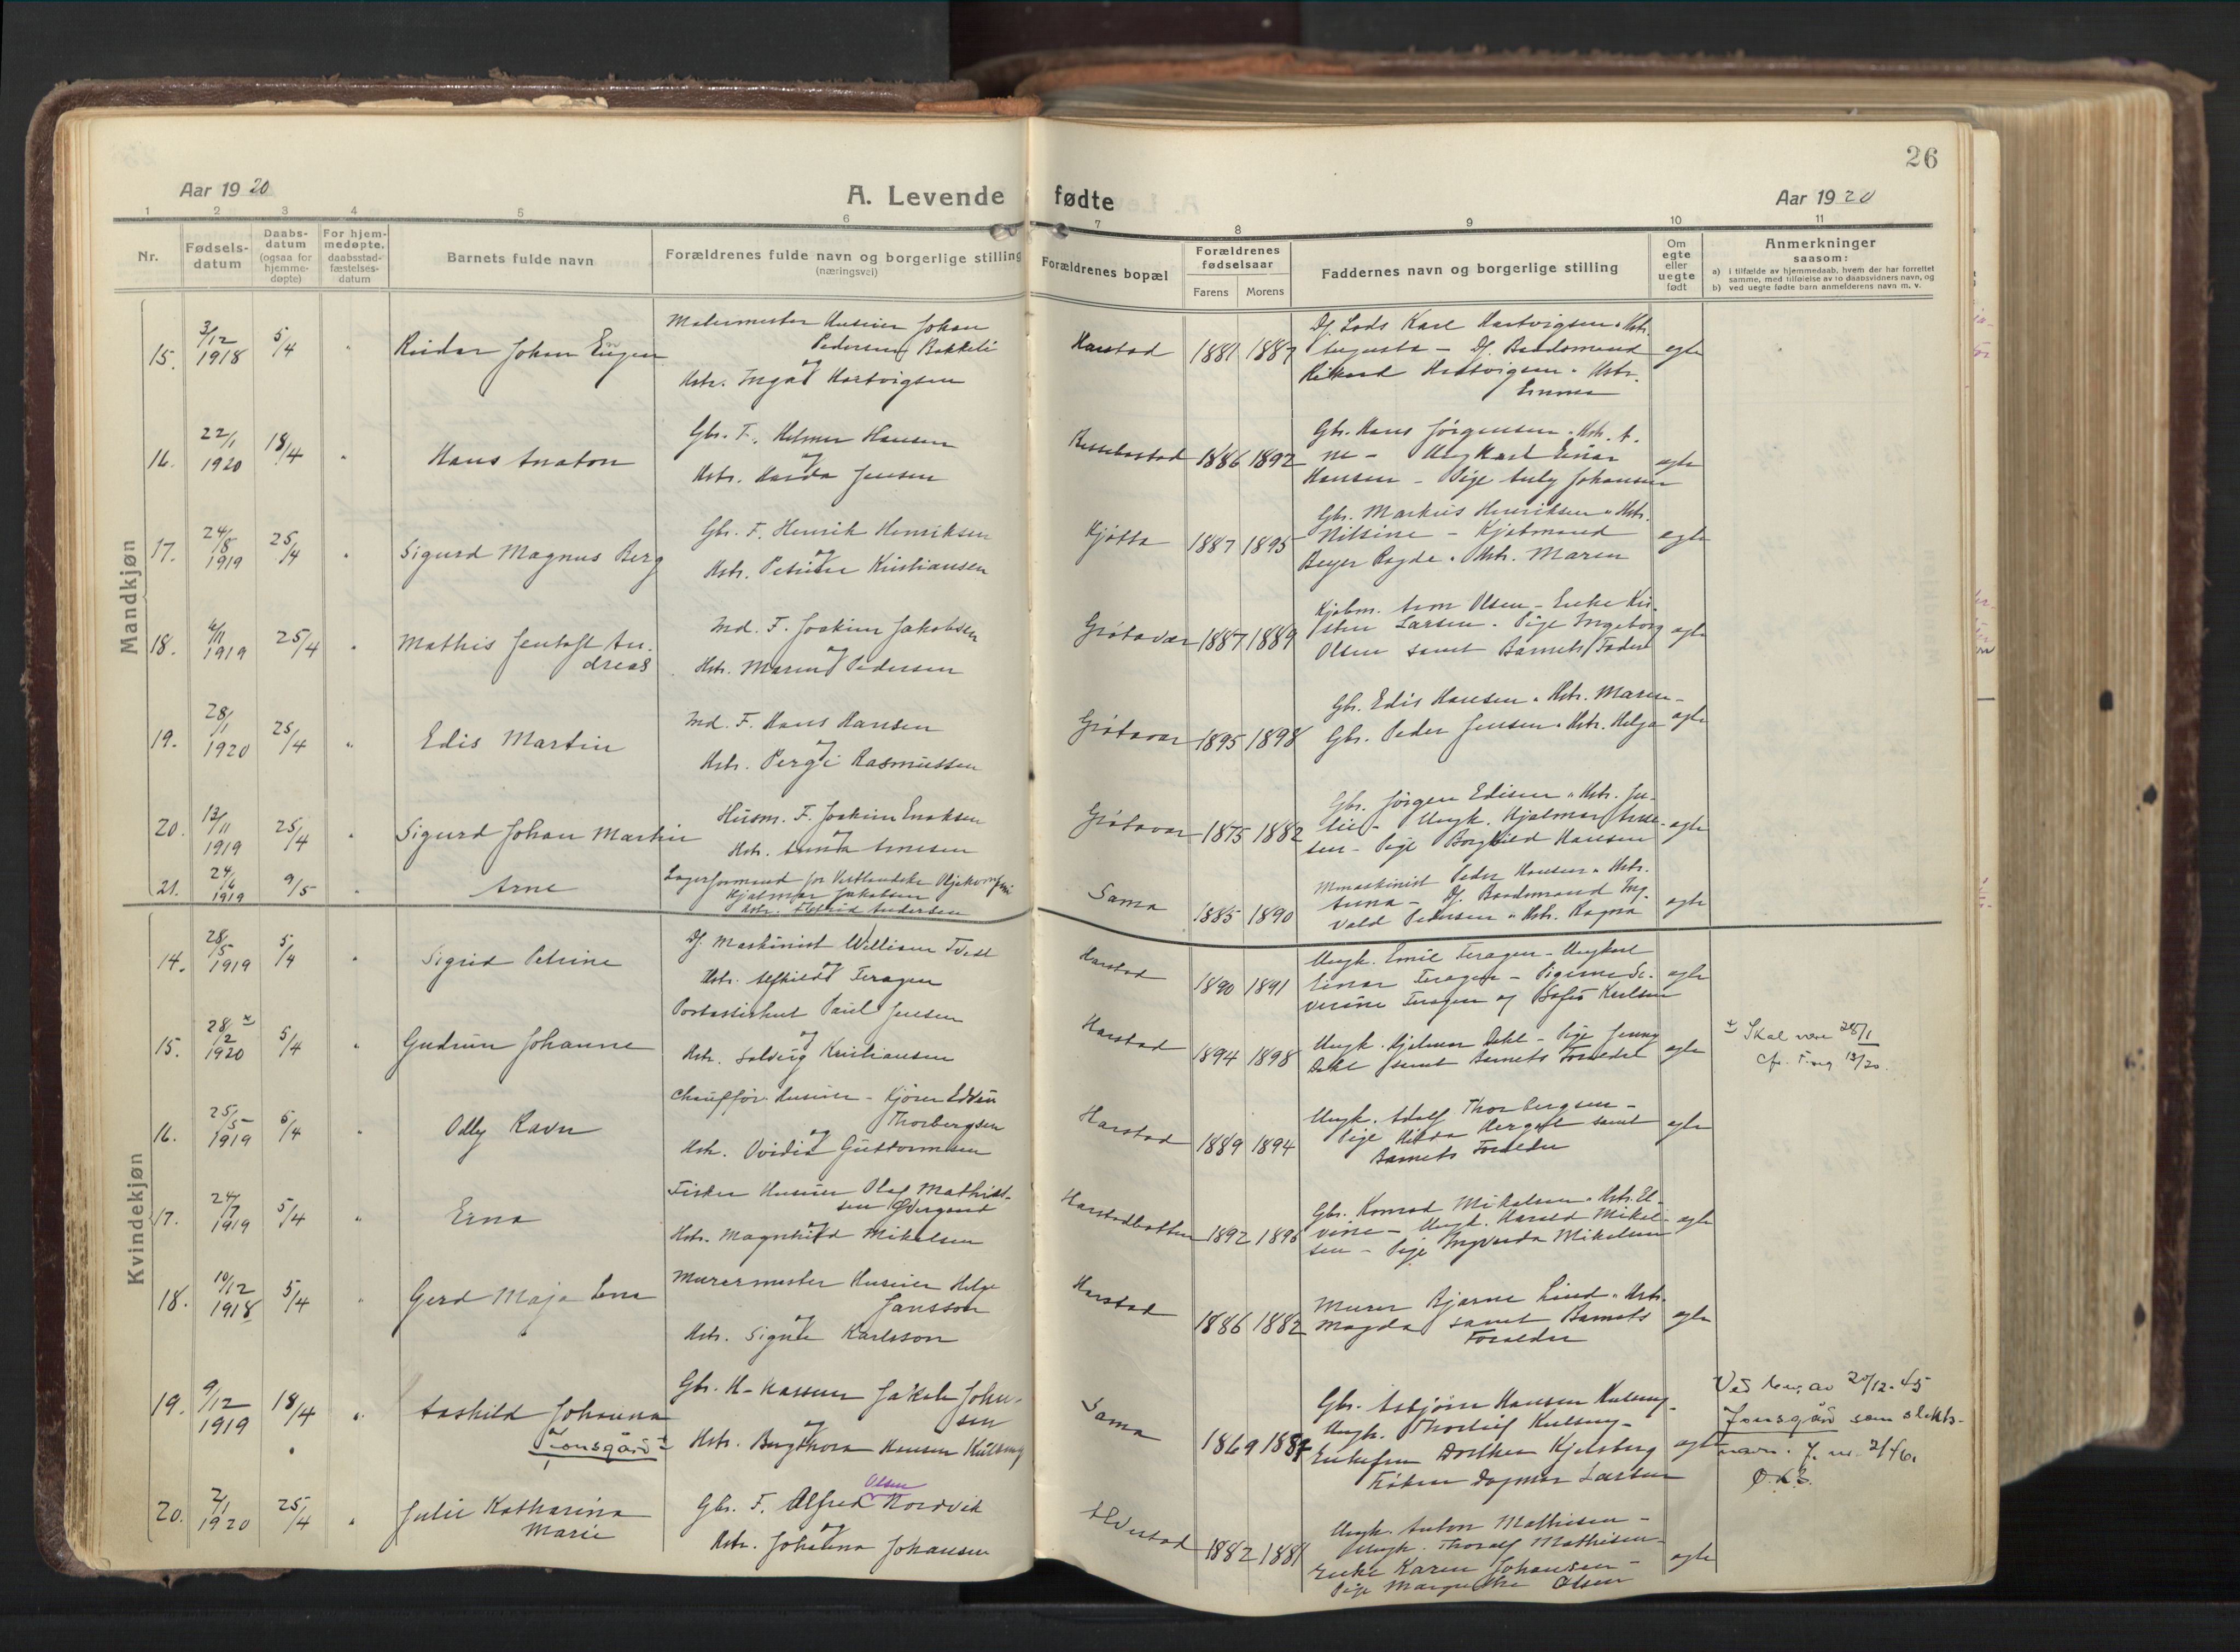 26
Aar 1920
A. Levende fødte
Aar 1920
1 2 3 4 5 6 7 8 9 10 11
Nr.
Fødsels-
datum
Daabs-
datum
(ogsaa for
hjemme-
døpte)
For hjem-
medøpte,
daabsstad-
fæstelses-
datum
Barnets fulde navn
Forældrenes fulde navn og borgerlige stilling
(næringsvei)
Forældrenes bopæl
Forældrenes
fødselsaar
Farens Morens
Faddernes navn og borgerlige stilling
Om
egte
eller
uegte
født
Anmerkninger
saasom:
a) i tilfælde av hjemmedaab, hvem der har forrettet
samme, med tilføielse av to daabsvidners navn, og
b) ved uegte fødte barn anmelderens navn m. v.
Mandkjøn
15. 3/12 1918 5/4 " Reidar Johan Eugen
Malermester Huseier Johan
Pedersen Bakkeli
og
Hstr. Inga Hartvigsen
Harstad 1881 1887
Df. Lods Karl Hartvigsen " Hstr.
Augusta - Df. Baadsmand
Rikard Hartvigsen " Hstr.
Emma
egte
16. 22/1 1920 18/4 " Hans Anaton
Gbr. F. Helmer Hansen
og
Hstr. Harda Jensen
Kassebostad 1886 1892
Gbr. Hans Jørgensen " Hstr. A-
ne - Ungkarl Einar
Hansen - Pige Anly Johansen
egte
17. 24/8 1919 25/4 " Sigurd Magnus Berg
Gbr. F. Henrik Henriksen
og
Hstr. Petrine Kristiansen
Kjøtta 1887 1895
Gbr. Markus Henriksen " Hstr.
Nilsine - Kjøbmand
Beyer Rogde " Hstr. Maren
egte
18. 4/11 1919 25/4 " Mathis Jentoft An-
dreas
Ind. F. Joakim Jakobsen
og
Hstr. Maren Pedersen
Grøtavær 1887 1889
Kjøbm. Aron Olsen - Enke Kir-
sten Larsen - Pige Ingeborg
Olsen samt Barnets Fader
egte
19. 28/1 1920 25/4 " Edis Martin
Ind. F. Hans Hansen
og
Hstr. Pergi Rasmussen
Grøtavær 1895 1898
Gbr. Edis Hansen " Hstr. Maren -
Gbr. Peder Jensen " Hstr. Helga
egte
20. 13/11 1919 25/4 " Sigurd Johan Martin
Husm. F. Joakim Enoksen
og
Hstr. Anna Arnesen
Grøtavær 1875 1882
Gbr. Jørgen Edisen " Hstr. Ju-
lie - Ungk. Hjalmar Arne-
sen - Pige Borghild Hansen
egte
21. 24/6 1919 9/5 " Arne
Lagerformand for Vestlandske Oljekompani
Hjalmar Jakobsen
Hstr. Astrid Andersen
Sama 1885 1890
Mmaskinist Peder Hansen " Hstr.
Anna - Df. Baadsmand Ing-
vald Pedersen " Hstr. Ragna
egte
Kvindekjøn
14. 28/5 1919 5/4 " Sigrid Petrine
Df. Maskinist William Tvedt
og
Hstr. Alfhild Teragen
Harstad 1890 1891
Ungk. Emil Teragen - Ungkarl
Einar Teragen - Pigerne Se-
verine Teragen og Sofie Karlsen
egte
15. 28/2 x 1920 5/4 " Gudrun Johanne
Postassistent Paul Jensen
og
Hstr. Solveig Kristiansen
Harstad 1894 1898
Ungk. Hjalmar Dahl - Pige Jenny
Dahl samt Barnets Forældre
egte
x Skal være 28/1
cfr. F.reg 13/20.
16. 25/5 1919 5/4 " Odly Ravn
Chauffør Husmer - Kjører Edvin
Thorbergsen
og
Hstr. Ovidia Guttormsen
Harstad 1889 1894
Ungk. Adolf Thorbergsen -
Pige Hilda Hergot samt
Barnets Forældre
egte
17. 24/7 1919 5/4 " Erna
Fisker Husmer Olaf Mathias-
sen Øvergaard
og
Hstr. Magnhild Mikalsen
Harstadbotten 1892 1896
Gbr. Konrad Mikalsen " Hstr. El-
vine - Ungk. Harald Mikal-
sen - Pige Ingvarda Mikalsen
egte
18. 10/12 1918 5/4 " Gerd Maja Lena
Murermester Husmer Helge
Jansson
og
Hstr. Signe Karlsson
Harstad 1886 1882
Murer Bjarne Lind " Hstr.
Magda samt Barnets
Forældre
egte
19. 9/12 1919 18/4 " Aashild Johanna
Jonsgård x
Gbr. H-kasserer Jakob John-
sen
og
Hstr. Bergthora Hansen Kulseng
Sama 1869 1884
Gbr. Asbjørn Hansen Kulseng -
Ungk. Thorleif Kulseng -
Enkefru Dorthea Kjelsberg
Frøken Dagmar Larsen
egte
Ved bev. av 20/12-45
Jonsgård som slekts-
navn. J. nr. 2/46.
Ø.K.S.
20. 2/1 1920 25/4 " Julie Katharina
Marie
Olsen
Gbr. F. Alfred Nordvik
og
Hstr. Johanna Johansen
Elvestad 1882 1881
Ungk. Anton Mathisen -
Ungk. Thoralf Mathisen -
Enke Karen Johansen -
Pige Margrethe Olsen
egte